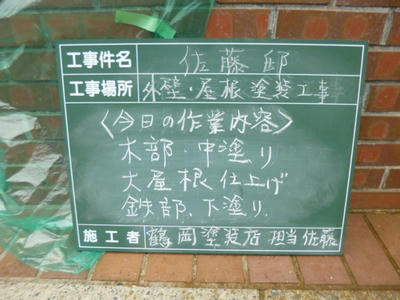 工事件名 佐藤邸
工事場所 外壁・屋根塗装工事
〈今日の作業内容〉
木部・中塗り
大屋根仕上げ
鉄部、下塗り.
施工者 鶴岡塗装店 担当 佐藤